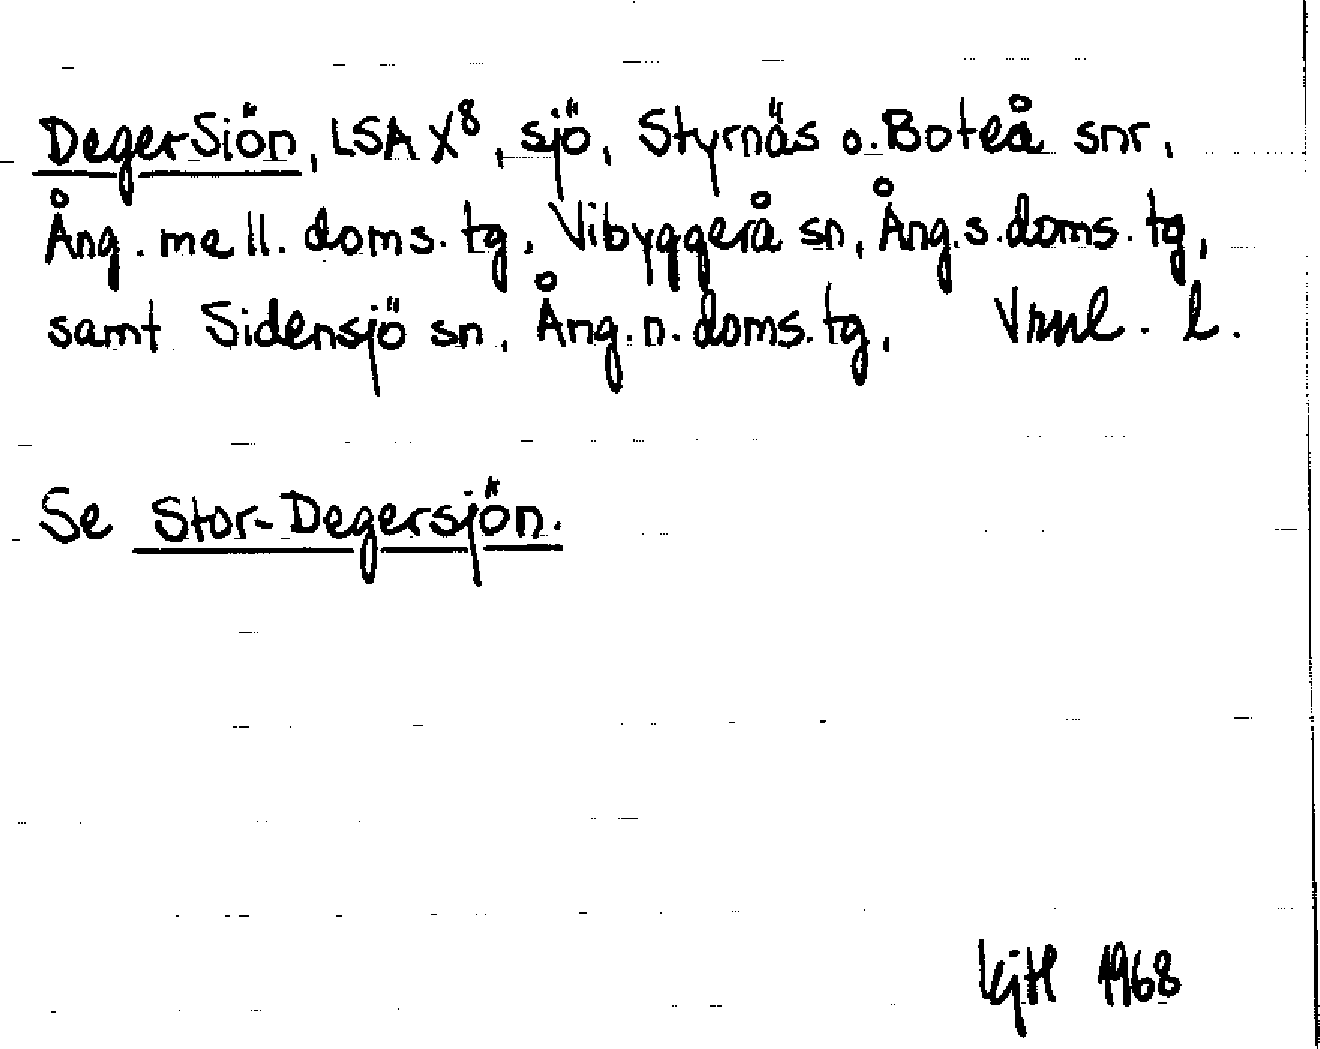 DegerSiön, LSA X⁸, sjö, Styrnäs o. Boteå snr,
Ång. mell. doms. tg, Vibyggerå sn, Ång. s. doms. tg,
samt Sidensjö sn, Ång. n. doms. tg, Vrnl. l.
Se Stor-Degersjön.
KjH 1968